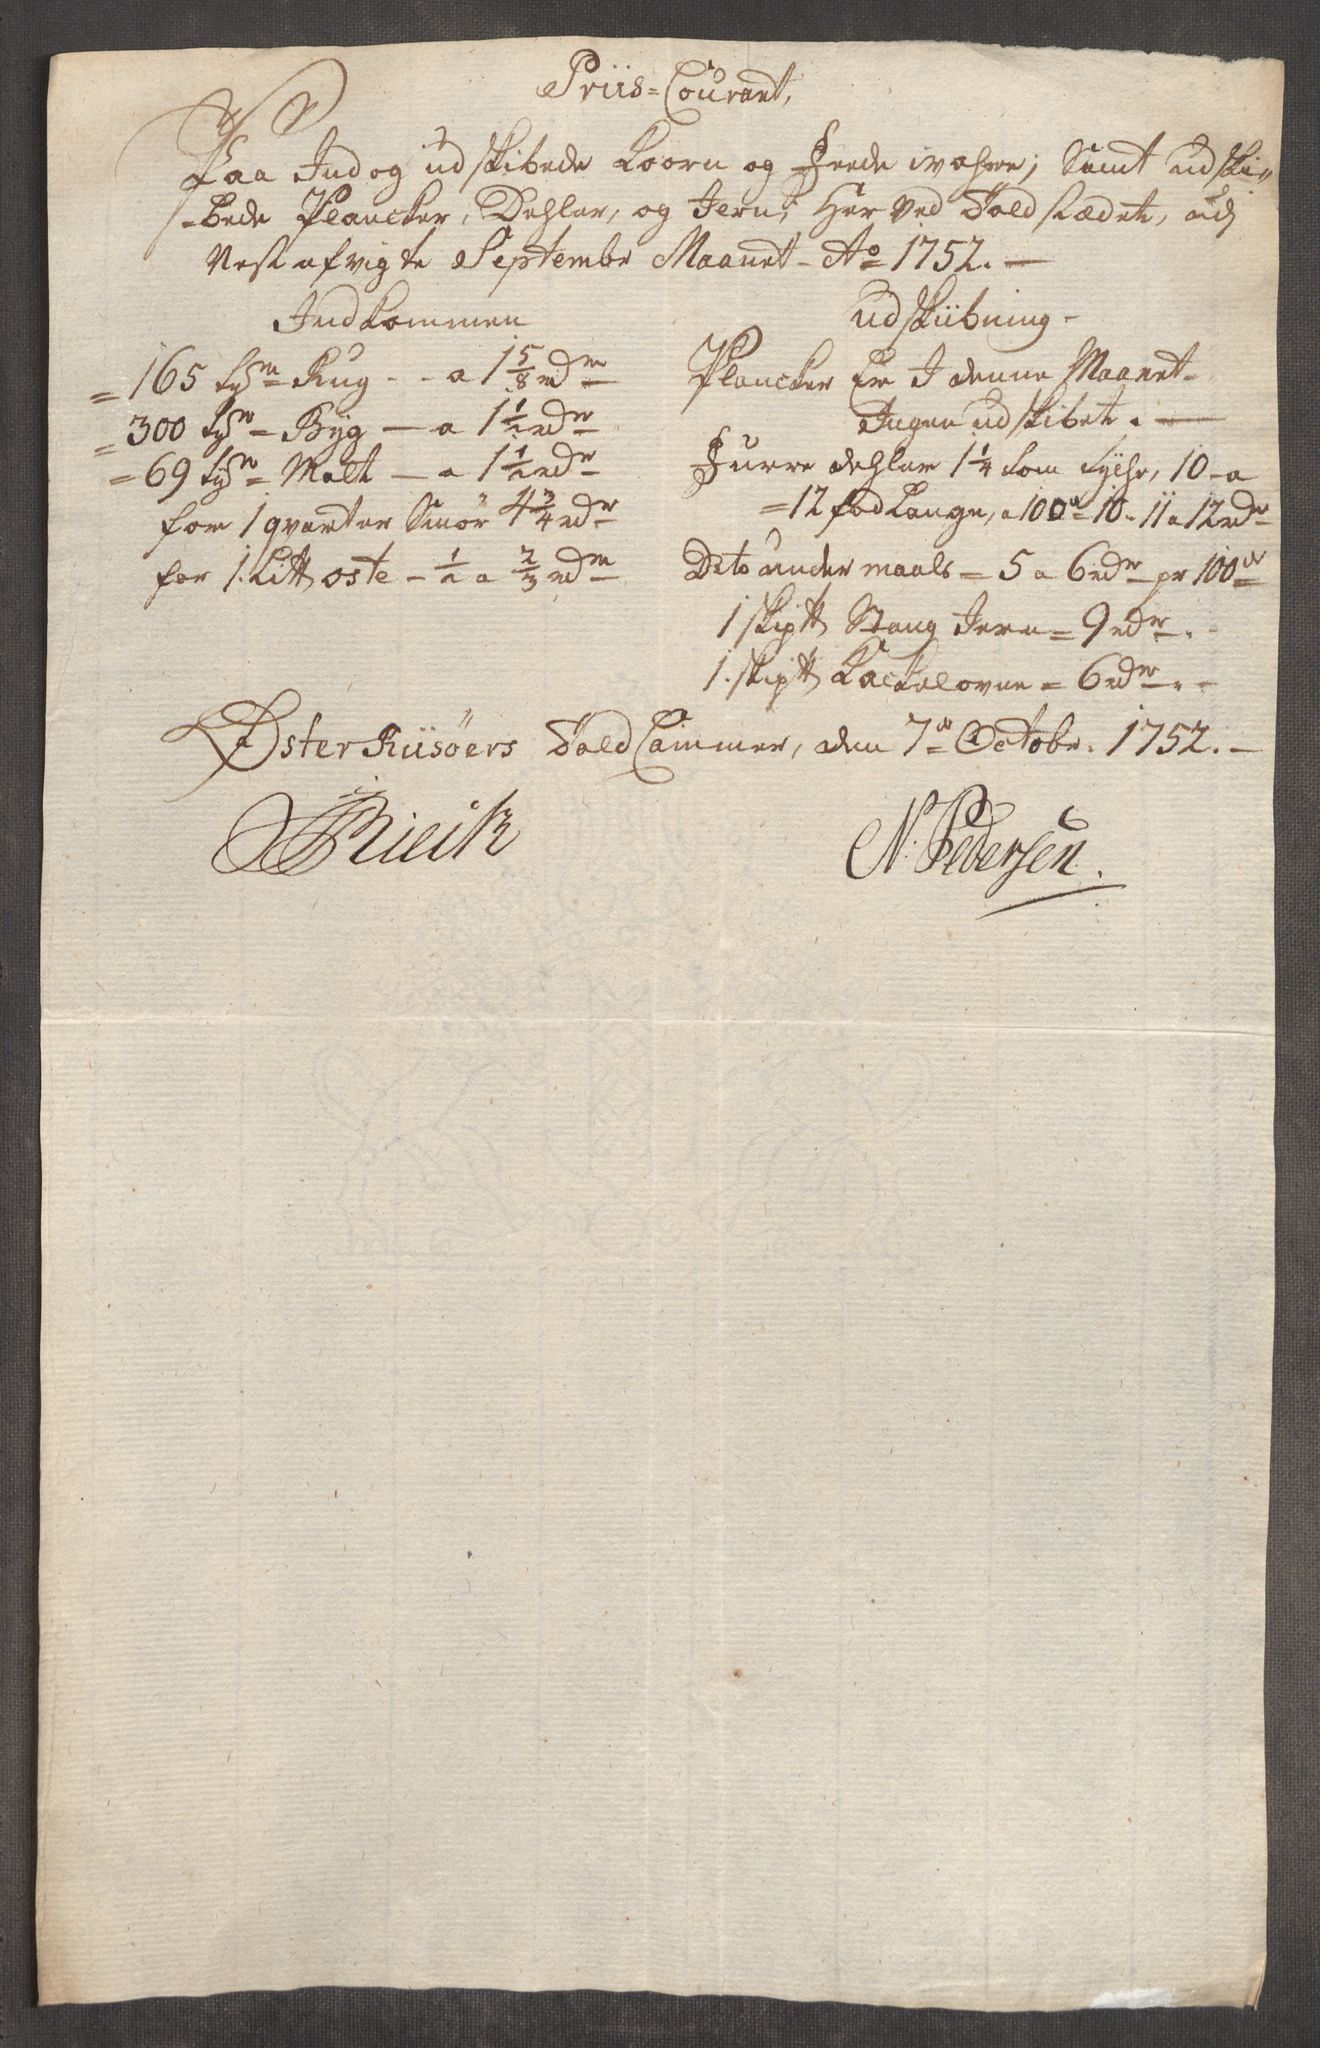 Priis-Courant,
Paa Ind og udskibede Koorn og Feede wahre; Samt udski-
-bede Plancker, Dehler, og Jern; Her ved Toldstædet, udj
Nest afvigte Septembr Maanet - Ao 1752. —
Indkommen
= 165 Tdr Rug - - a 1 5/8 rdr
= 300 Tdr Byg — a 1 1/2 rdr
= 69 Tdr Malt — a 1 1/2 rdr
for 1 qvarter Smør 4 3/4 rdr
for 1. Litt oste - 1/2 a 2/3 rdr
udskibning -
Plancker Er I denne Maanet
Ingen udskibet. —
Furre dehler 1 1/4 tom tyche, 10 - a
= 12 fod Lange, a 100de 10 - 11 a 12 rdr
Dito under maals = 5 a 6 rdr pr 100de
1 skip℔ Stang Jern = 9 rdr. -
1. skip℔ Kackelovne = 6 rdr. -
Øster Riisøers Told Cammer, den 7de Octobr. 1752. —
N: Pedersen.